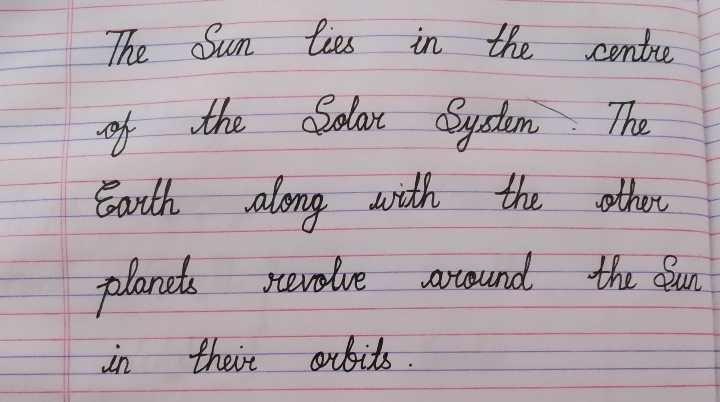 The Sun lies in the centre
of the Solar System. The
Earth along with the other
planets revolve around the Sun
in their orbits.